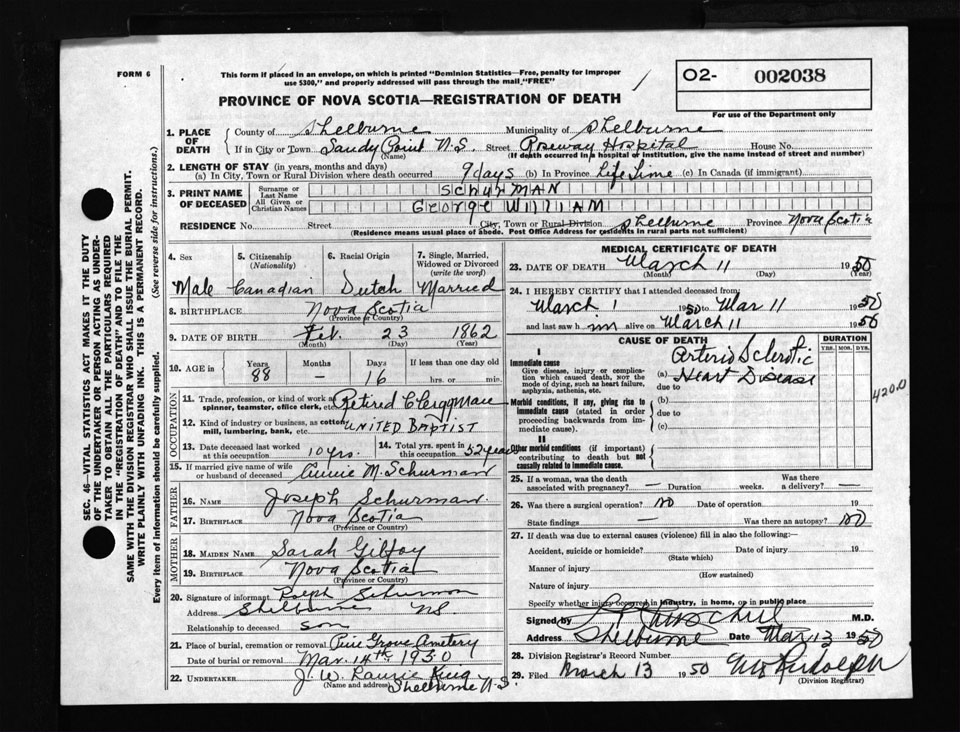 FORM 6
This form if placed in an envelope, on which is printed "Dominion Statistics—Free, penalty for improper
use $300," and properly addressed will pass through the mail "FREE"
PROVINCE OF NOVA SCOTIA—REGISTRATION OF DEATH
O2- 002038
For use of the Department only
1. PLACE OF DEATH { County of Shelburne Municipality of Shelburne
If in City or Town Sandy Point N.S. Street Roseway Hospital House No.
(Name) (If death occurred in a hospital or institution, give the name instead of street and number)
2. LENGTH OF STAY (in years, months and days)
(a) In City, Town or Rural Division where death occurred 9 days (b) In Province Life Time (c) In Canada (if immigrant)
3. PRINT NAME OF DECEASED { Surname or Last Name SCHURMAN
All Given or Christian Names GEORGE WILLIAM
RESIDENCE No. Street City, Town or Rural Division Shelburne Province Nova Scotia
(Residence means usual place of abode. Post Office Address for residents in rural parts not sufficient)
SEC. 46—VITAL STATISTICS ACT MAKES IT THE DUTY
OF THE UNDERTAKER OR PERSON ACTING AS UNDER-
TAKER TO OBTAIN ALL THE PARTICULARS REQUIRED
IN THE "REGISTRATION OF DEATH" AND TO FILE THE
SAME WITH THE DIVISION REGISTRAR WHO SHALL ISSUE THE BURIAL PERMIT.
WRITE PLAINLY WITH UNFADING INK. THIS IS A PERMANENT RECORD.
Every item of information should be carefully supplied. (See reverse side for instructions.)
4. Sex 5. Citizenship (Nationality) 6. Racial Origin 7. Single, Married, Widowed or Divorced (write the word)
Male Canadian Dutch Married
8. BIRTHPLACE Nova Scotia
(Province or Country)
9. DATE OF BIRTH Feb. 23 1862
(Month) (Day) (Year)
10. AGE in { Years Months Days If less than one day old
88 — 16 hrs. or min.
OCCUPATION
11. Trade, profession, or kind of work as spinner, teamster, office clerk, etc. Retired Clergyman
12. Kind of industry or business, as cotton mill, lumbering, bank, etc. UNITED BAPTIST
13. Date deceased last worked at this occupation 10 yrs. 14. Total yrs. spent in this occupation 52 years
15. If married give name of wife or husband of deceased Annie M. Schurman
FATHER
16. NAME Joseph Schurman
17. BIRTHPLACE Nova Scotia
(Province or Country)
MOTHER
18. MAIDEN NAME Sarah Gilfoy
19. BIRTHPLACE Nova Scotia
(Province or Country)
20. Signature of informant Ralph Schurman
Address Shelburne N.S.
Relationship to deceased son
21. Place of burial, cremation or removal Pine Grove Cemetery
Date of burial or removal Mar. 14th 1950
22. UNDERTAKER J. W. Laurie King
(Name and address) Shelburne N.S.
MEDICAL CERTIFICATE OF DEATH
23. DATE OF DEATH March 11 1950
(Month) (Day) (Year)
24. I HEREBY CERTIFY that I attended deceased from
March 1 1950 to Mar 11 1950
and last saw him alive on March 11 1950
CAUSE OF DEATH DURATION
YRS. MOS. DYS.
I
Immediate cause
Give disease, injury or complication which caused death, not the mode of dying, such as heart failure, asphyxia, asthenia, etc.
(a) Arterio Sclerotic Heart Disease
due to
Morbid conditions, if any, giving rise to immediate cause (stated in order proceeding backwards from immediate cause).
(b)
due to
(c)
4200
II
Other morbid conditions (if important) contributing to death but not causally related to immediate cause.
25. If a woman, was the death associated with pregnancy? — Duration weeks. Was there a delivery? —
26. Was there a surgical operation? No Date of operation 19
State findings — Was there an autopsy? No
27. If death was due to external causes (violence) fill in also the following:—
Accident, suicide or homicide? Date of injury 19
(State which)
Manner of injury
(How sustained)
Nature of injury
Specify whether injury occurred in industry, in home, or in public place
Signed by M.D.
Address Shelburne Date Mar 13 1950
28. Division Registrar's Record Number
29. Filed March 13 1950 Rudolph
(Division Registrar)